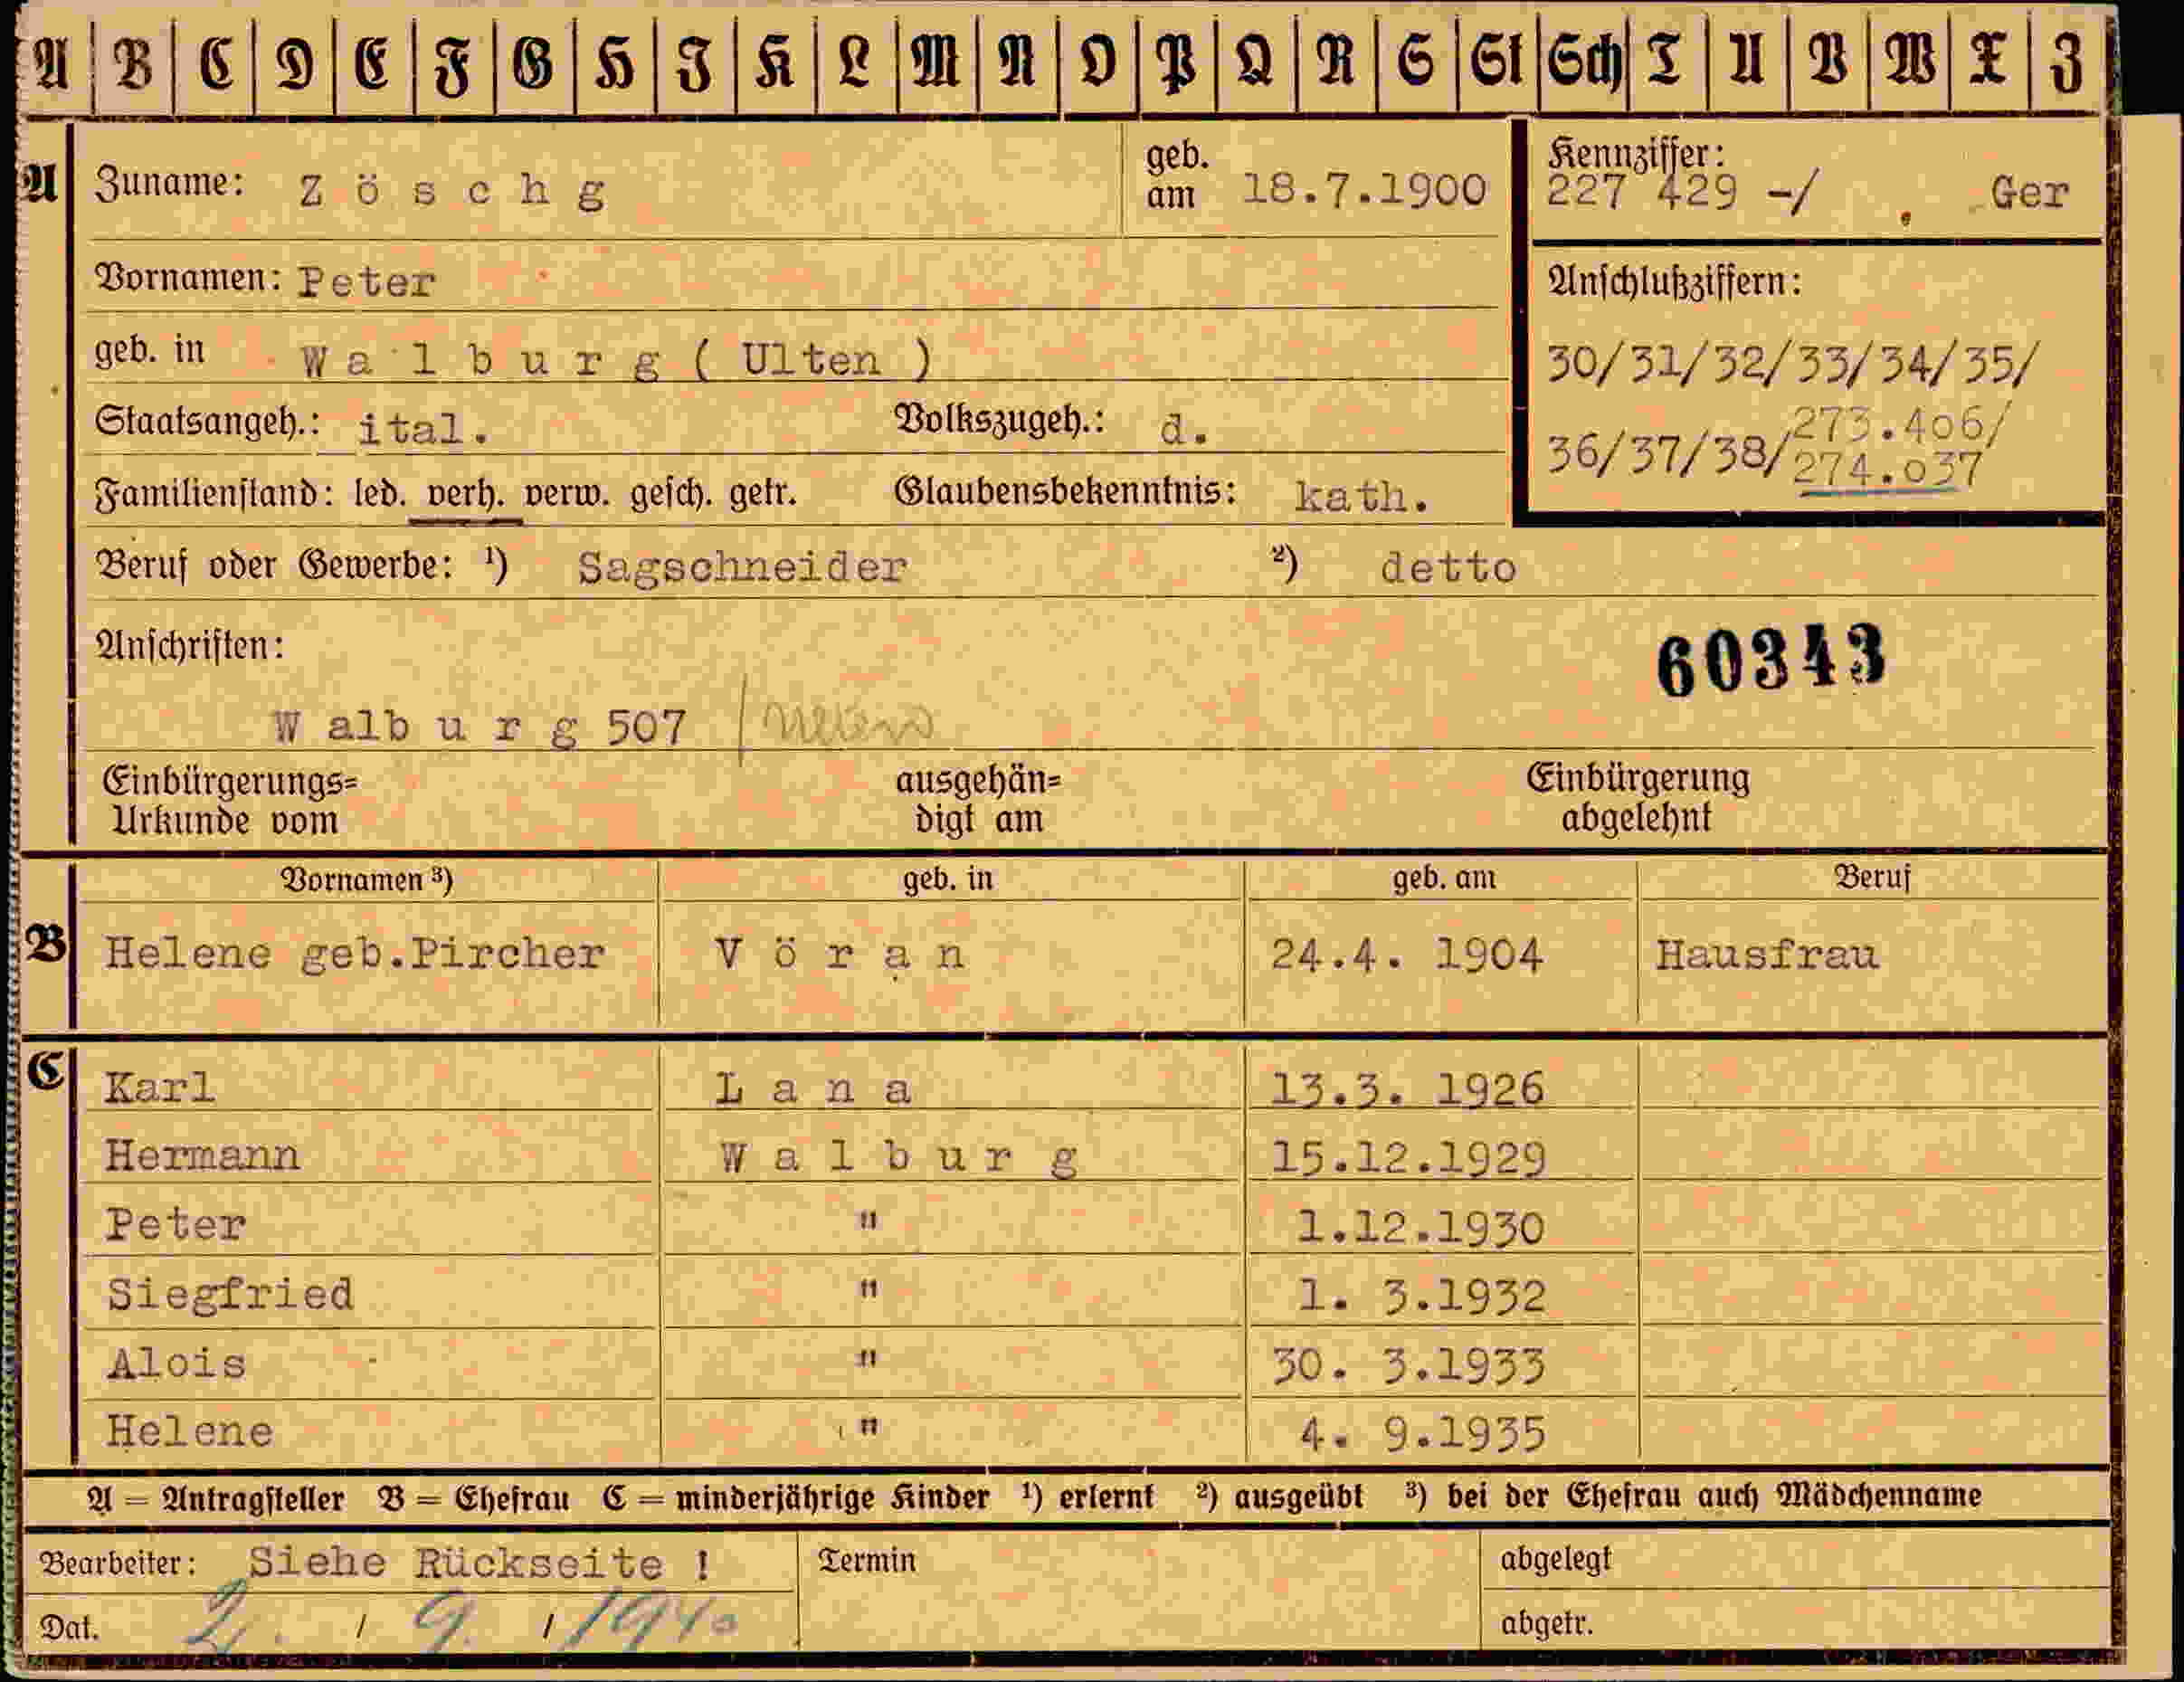 A B C D E F G H J K L M N O P Q R S St Sch T U V W X Z
A Zuname: Zöschg geb. am 18.7.1900
Kennziffer:
227 429 -/ . Ger
Vornamen: Peter
Anschlußziffern:
geb. in Walburg ( Ulten )
30/31/32/33/34/35/
Staatsangeh.: ital. Volkszugeh.: d.
36/37/38/273.406/
274.037
Familienstand: led. verh. verw. gesch. getr. Glaubensbekenntnis: kath.
Beruf oder Gewerbe: ¹) Sagschneider ²) detto
Anschriften:
60343
Walburg 507 /
Einbürgerungs= ausgehän= Einbürgerung
Urkunde vom digt am abgelehnt
Vornamen ³) geb. in geb. am Beruf
B Helene geb.Pircher Vöran 24.4. 1904 Hausfrau
C Karl Lana 13.3. 1926
Hermann Walburg 15.12.1929
Peter " 1.12.1930
Siegfried " 1. 3.1932
Alois " 30. 3.1933
Helene " 4. 9.1935
A = Antragsteller B = Ehefrau C = minderjährige Kinder ¹) erlernt ²) ausgeübt ³) bei der Ehefrau auch Mädchenname
Bearbeiter: Siehe Rückseite ! Termin abgelegt
Dat. 2. / 9. / 1940 abgetr.